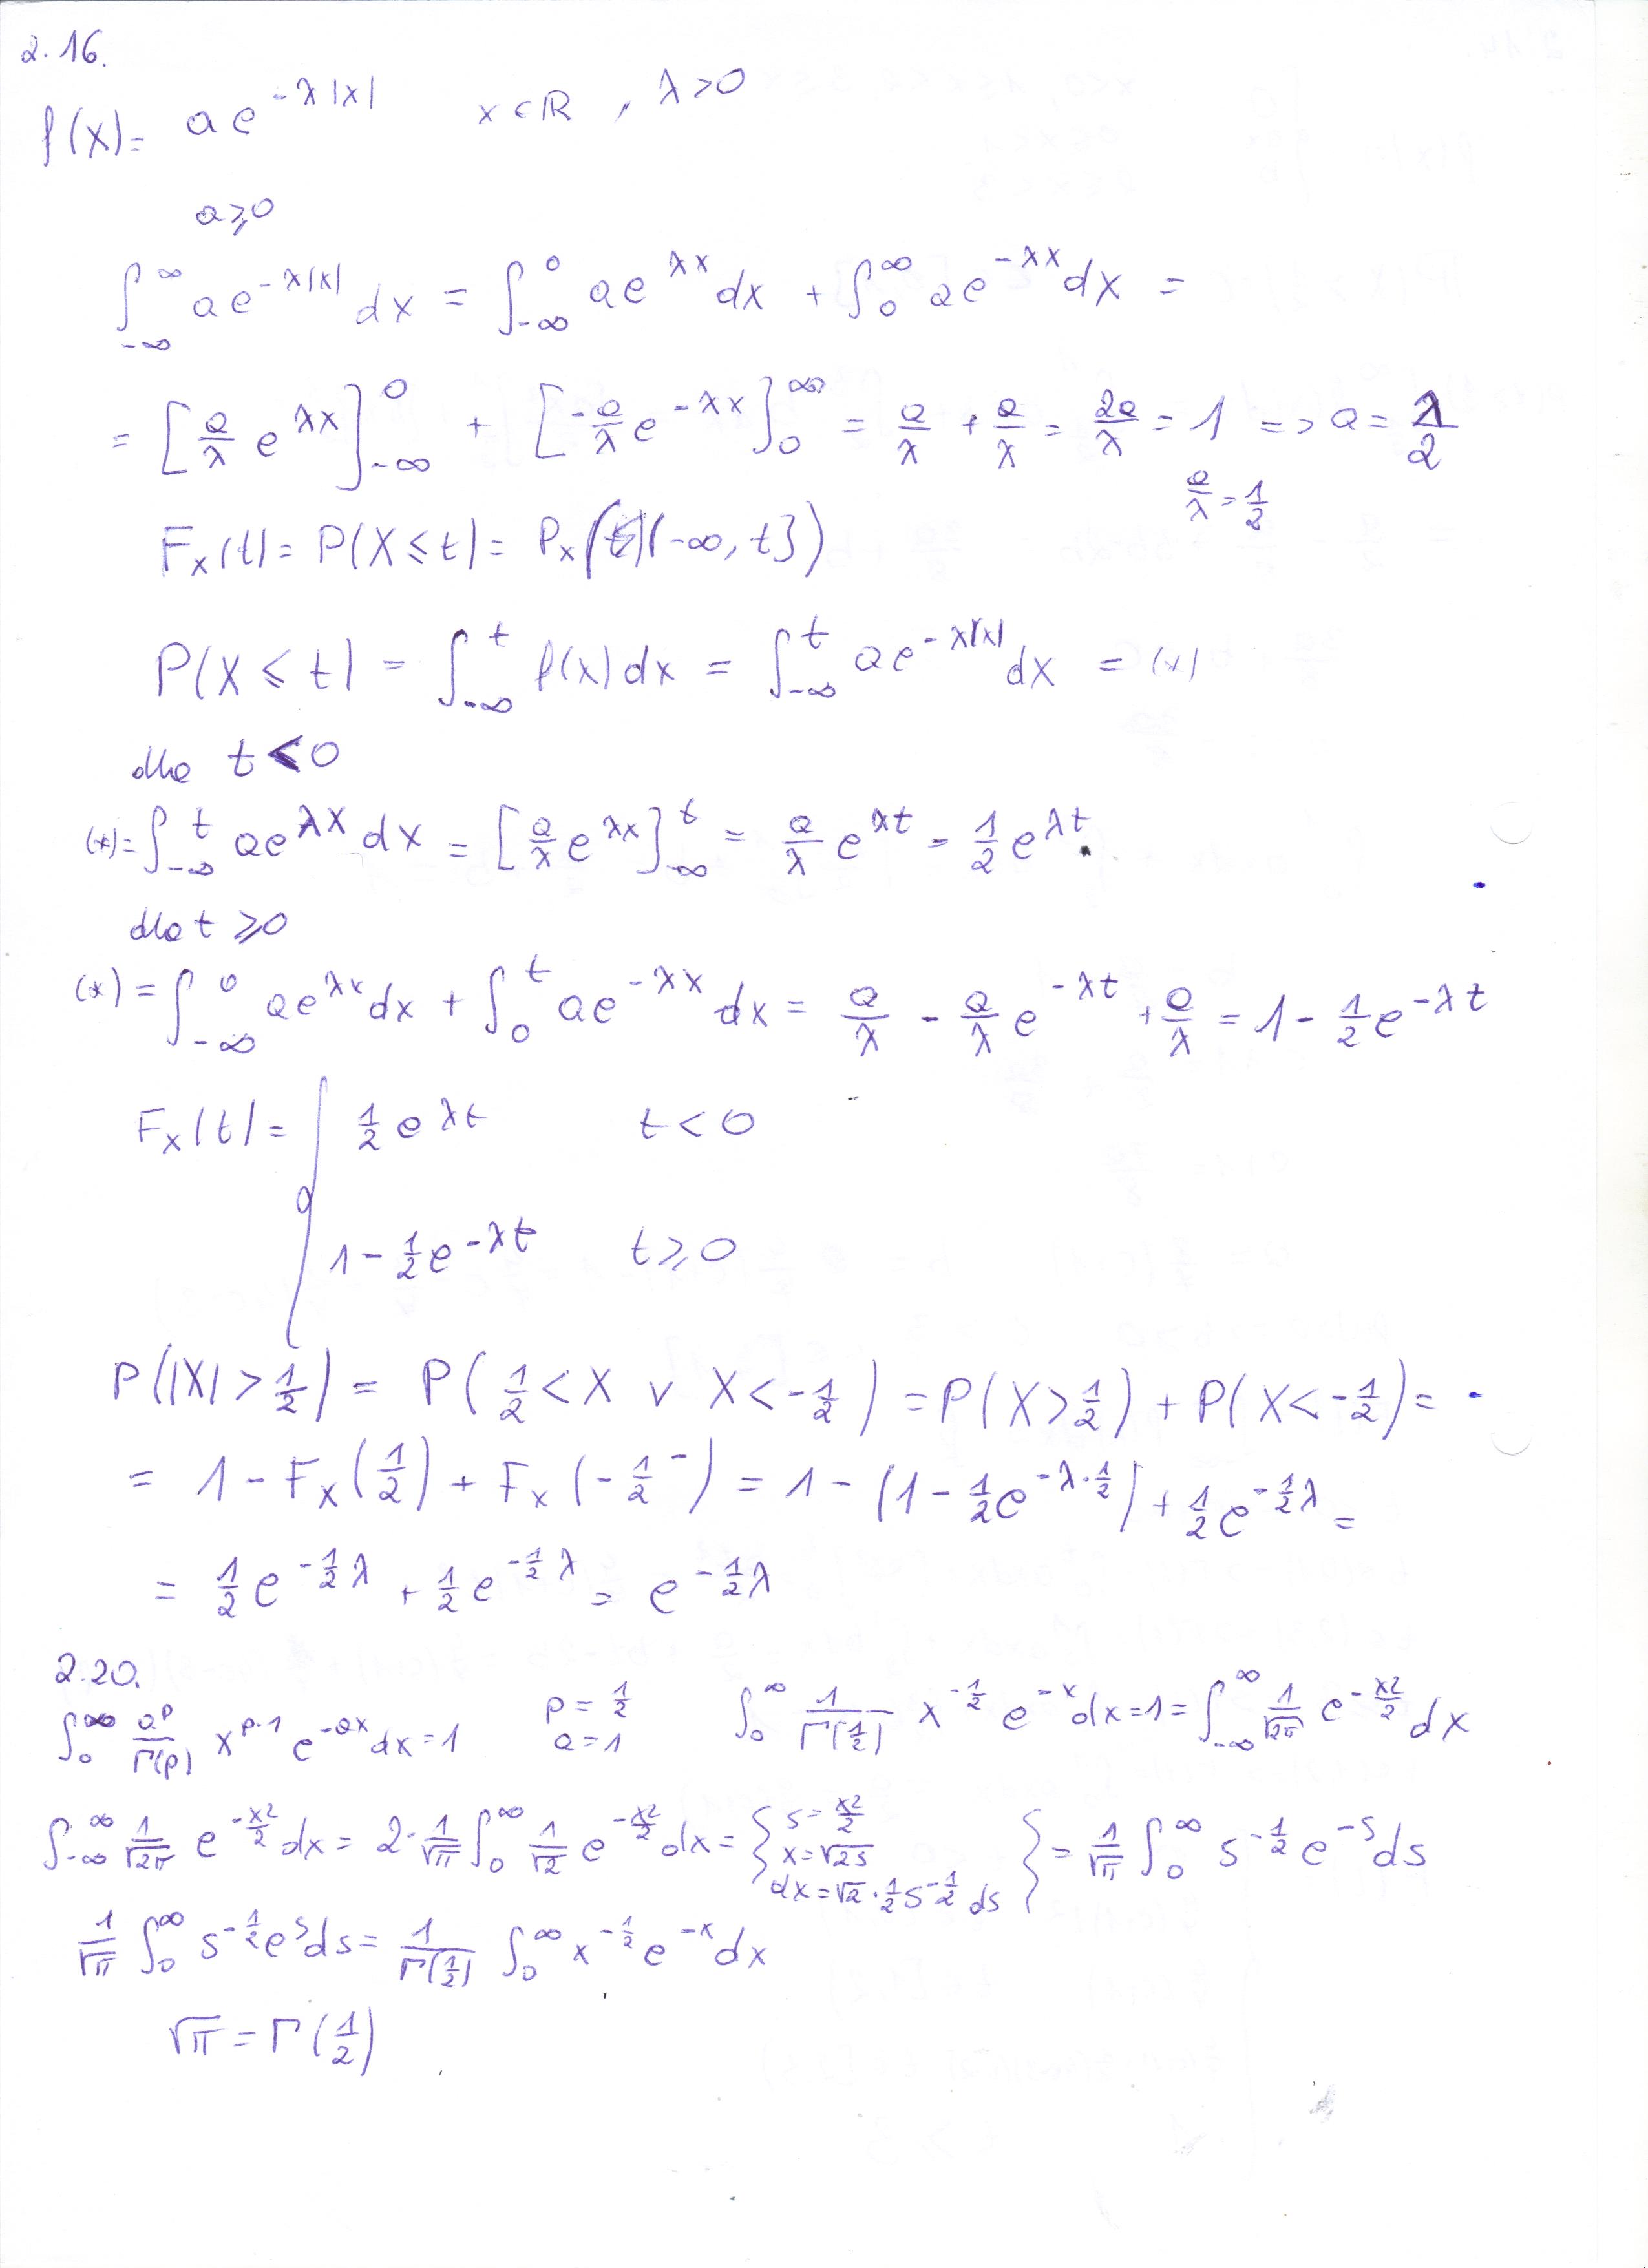 2.16.
f(x) = a e^{-λ|x|} x ∈ ℝ , λ>0
a ≥ 0
∫_{-∞}^{∞} a e^{-λ|x|} dx = ∫_{-∞}^{0} a e^{λx} dx + ∫_{0}^{∞} a e^{-λx} dx =
= [a/λ e^{λx}]_{-∞}^{0} + [-a/λ e^{-λx}]_{0}^{∞} = a/λ + a/λ = 2a/λ = 1 => a = λ/2
a/λ = 1/2
F_X(t) = P(X ≤ t) = P_X((-∞, t])
P(X ≤ t) = ∫_{-∞}^{t} f(x) dx = ∫_{-∞}^{t} a e^{-λ|x|} dx = (*)
dla t < 0
(*) = ∫_{-∞}^{t} a e^{λx} dx = [a/λ e^{λx}]_{-∞}^{t} = a/λ e^{λt} = 1/2 e^{λt}
dla t ≥ 0
(*) = ∫_{-∞}^{0} a e^{λx} dx + ∫_{0}^{t} a e^{-λx} dx = a/λ - a/λ e^{-λt} + a/λ = 1 - 1/2 e^{-λt}
F_X(t) = { 1/2 e^{λt} t < 0
1 - 1/2 e^{-λt} t ≥ 0
P(|X| > 1/2) = P(1/2 < X ∨ X < -1/2) = P(X > 1/2) + P(X < -1/2) =
= 1 - F_X(1/2) + F_X(-1/2^-) = 1 - (1 - 1/2 e^{-λ·1/2}) + 1/2 e^{-1/2 λ} =
= 1/2 e^{-1/2 λ} + 1/2 e^{-1/2 λ} = e^{-1/2 λ}
2.20.
∫_{0}^{∞} a^p/Γ(p) x^{p-1} e^{-ax} dx = 1 p = 1/2 a = 1 ∫_{0}^{∞} 1/Γ(1/2) x^{-1/2} e^{-x} dx = 1 = ∫_{-∞}^{∞} 1/√2π e^{-x²/2} dx
∫_{-∞}^{∞} 1/√2π e^{-x²/2} dx = 2·1/√π ∫_{0}^{∞} 1/√2 e^{-x²/2} dx = { s = x²/2 x = √2s dx = √2·1/2 s^{-1/2} ds } = 1/√π ∫_{0}^{∞} s^{-1/2} e^{-s} ds
1/√π ∫_{0}^{∞} s^{-1/2} e^{s} ds = 1/Γ(1/2) ∫_{0}^{∞} x^{-1/2} e^{-x} dx
√π = Γ(1/2)